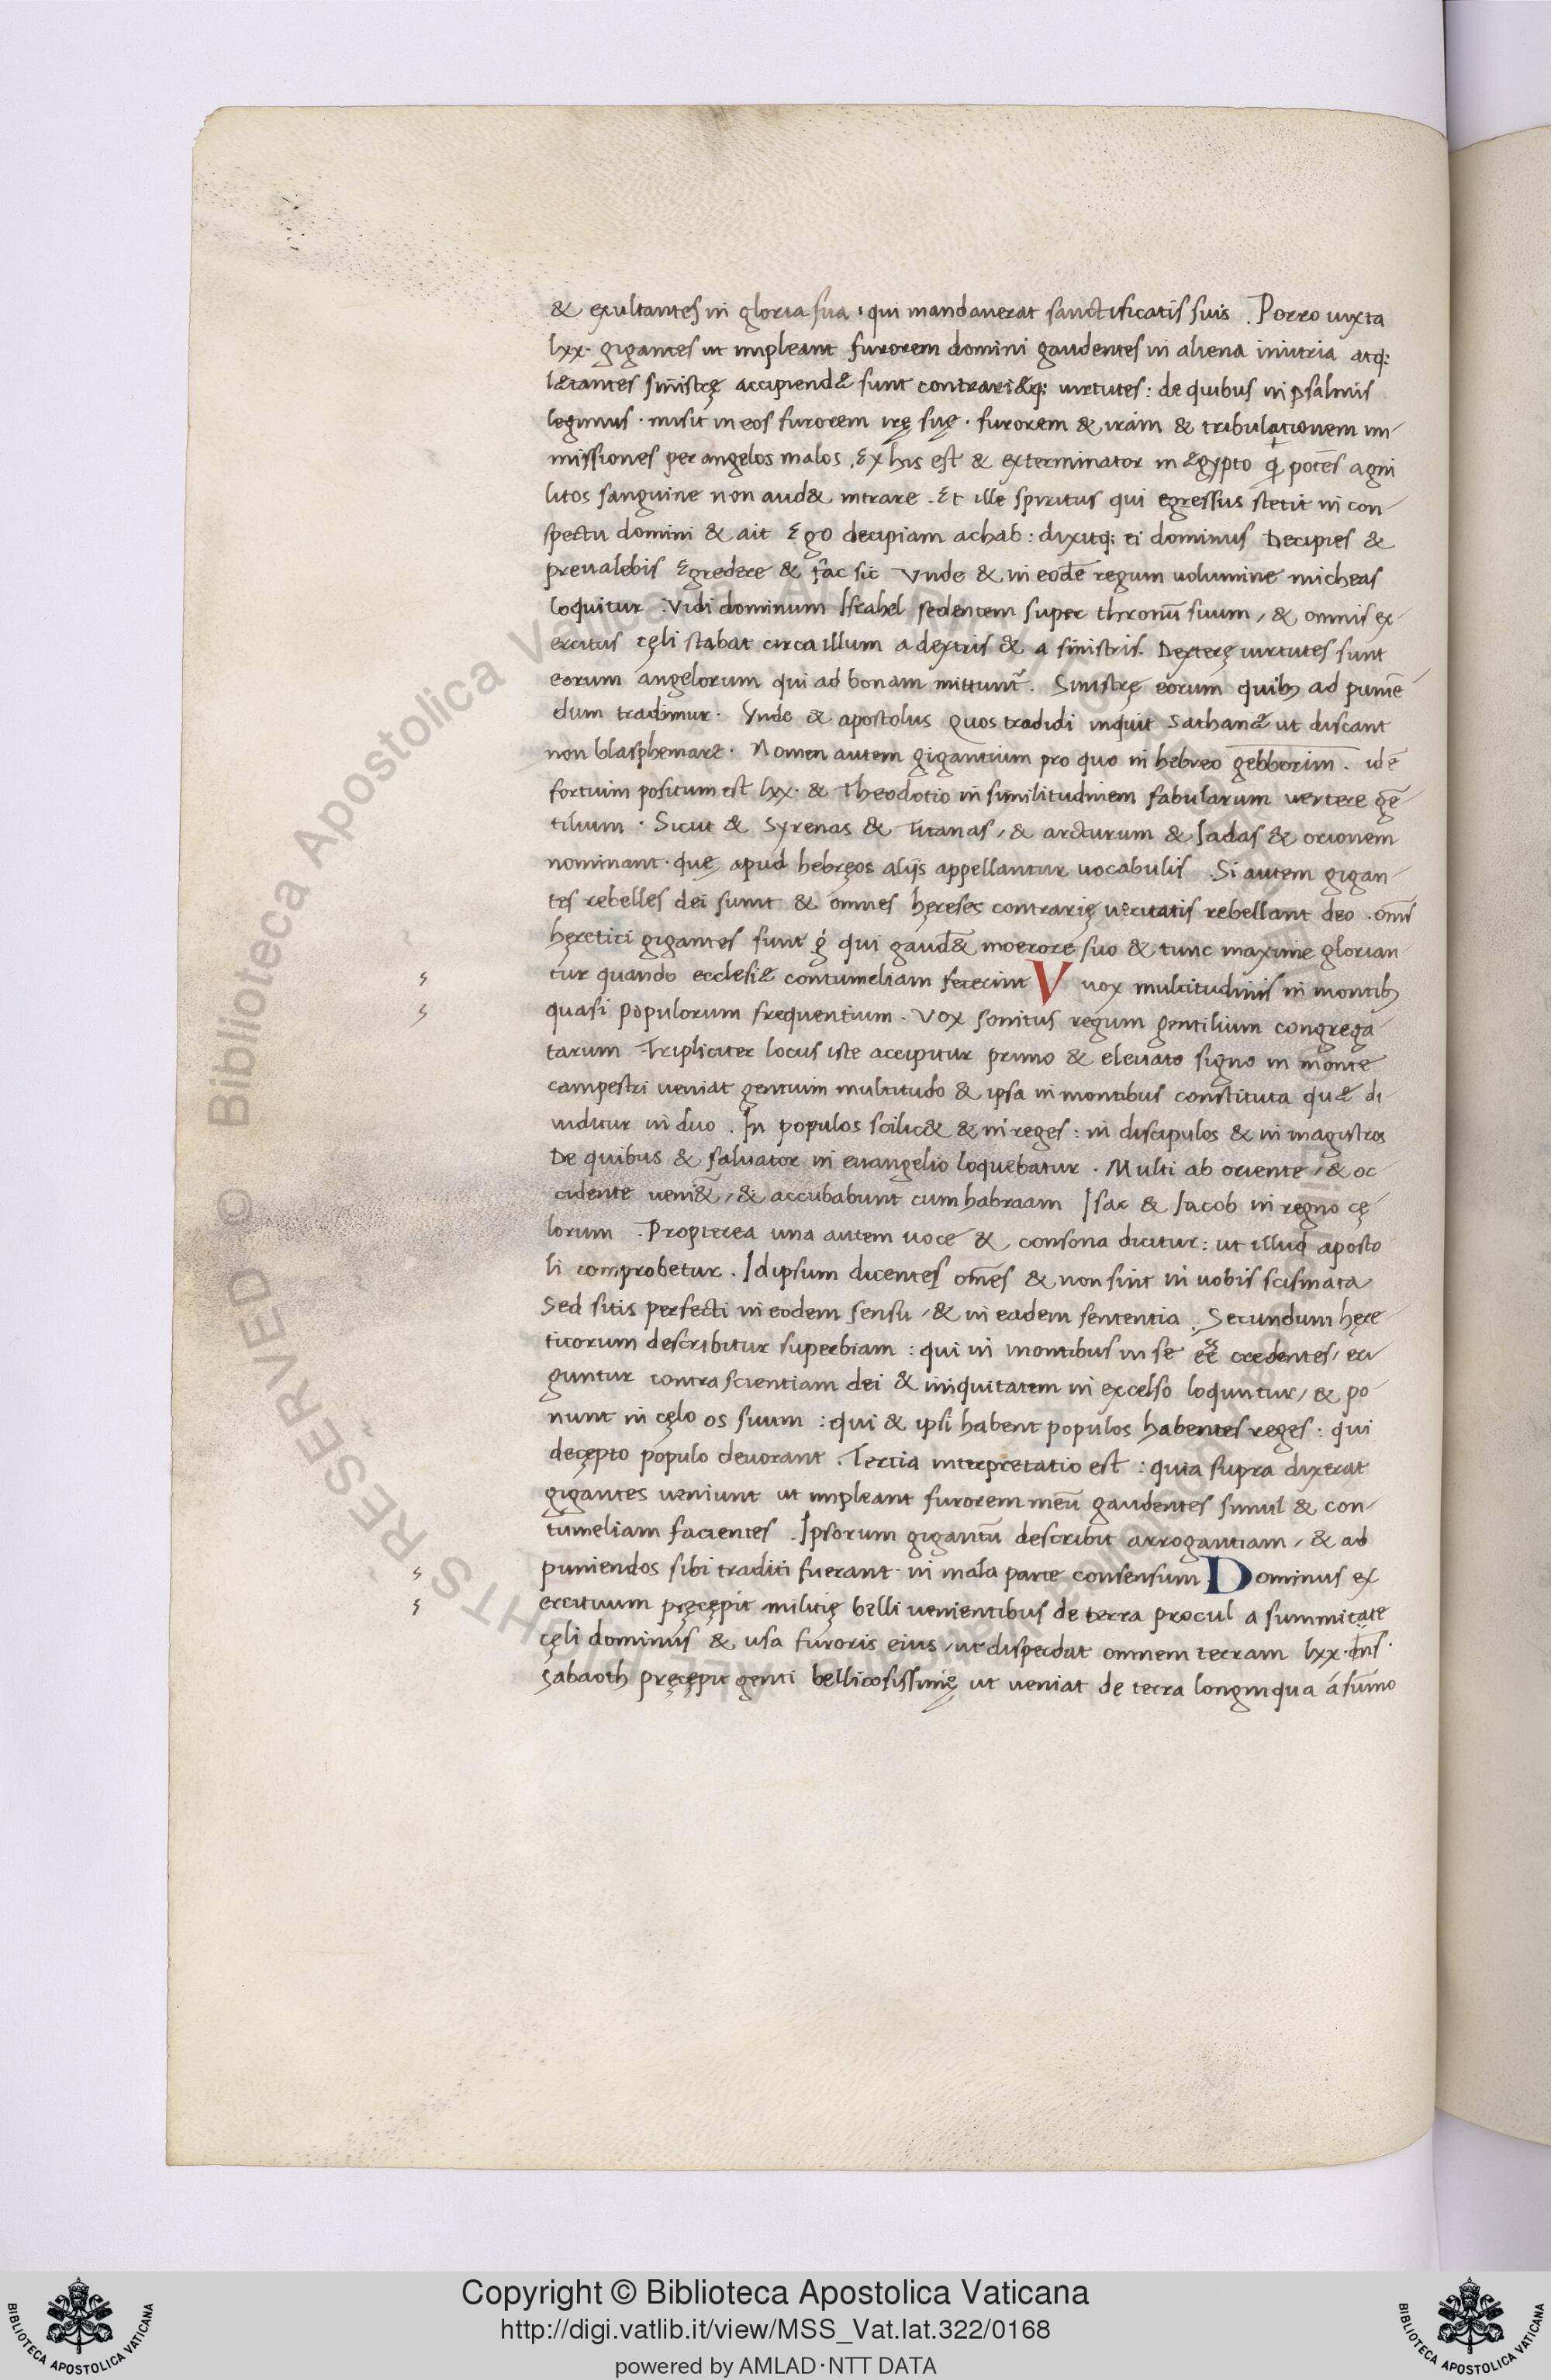 & exultantes in gloria sua : qui mandauerat sanctificatis suis . Porro iuxta
lxx · gigantes ut impleant furorem domini gaudentes in aliena iniuria atq;
lætantes sinistrę accipiendæ sunt contrariæq; uirtutes : de quibus in psalmis
legimus · misit in eos furorem irę suę · furorem & iram & tribulationem im-
missiones per angelos malos . Ex his est & exterminator in ægypto q̣ potēs agni
litos sanguine non aud& intrare . Et ille spiritus qui egressus stetit in con-
spectu domini & ait Ego decipiam achab : dixitq; ei dominus Decipies &
preualebis Egredere & fac sic Vnde & in eodē regum uolumine micheas
loquitur . Vidi dominum Israhel sedentem super thronū suum / & omnis ex-
ercitus cęli stabat circa illum a dextris & a sinistris . Dexterę uirtutes sunt
eorum angelorum qui ad bonam mittunt̃ . Sinistrę eorum quibꝫ ad puniē-
dum tradimur · Vnde & apostolus Quos tradidi inquit Sathanæ ut discant
non blasphemare · Nomen autem gigantium pro quo in hebreo gebborim . idē
fortium positum est lxx · & Theodotio in similitudinem fabularum uertere gē-
tilium · Sicut & Syrenas & Titanas / & arcturum & Iadas & orionem
nominant · quę apud hebręos alijs appellantur uocabulis . Si autem gigan-
tes rebelles dei sunt & omnes hęreses contrarię ueritatis rebellant deo . om̄s
hęretici gigantes sunt g̍ qui gaud& moerore suo & tunc maxime glorian-
tur quando ecclesiæ contumeliam fecerint V uox multitudinis in montibꝫ
quasi populorum frequentium . Vox sonitus regum gentilium congrega-
tarum Tripliciter locus iste accipitur primo & eleuato signo in monte
campestri ueniat gentium multitudo & ipsa in montibus constituta quæ di-
uiditur in duo . In populos scilic& & in reges : in discipulos & in magistros
De quibus & saluator in euangelio loquebatur . Multi ab oriente / & oc-
cidente ueni&̃ / & accubabunt cum habraam Isac & Iacob in regno cę-
lorum . Propterea una autem uoce & consona dicitur : ut illud aposto-
li comprobetur . Idipsum dicentes om̄es & non sint in uobis scismata
Sed sitis perfecti in eodem sensu / & in eadem sententia . Secundum hęre-
ticorum describitur superbiam : qui in montibus in se eē credentes / eri-
guntur contra scientiam dei & iniquitatem in excelso loquntur / & po-
nunt in cęlo os suum : qui & ipsi habent populos habentes reges : qui
decępto populo deuorant . Tertia interpretatio est : quia supra dixerat
gigantes ueniunt ut impleant furorem meū gaudentes simul & con-
tumeliam facientes . Ipsorum gigantū describit arrogantiam / & ad
puniendos sibi traditi fuerant · in mala parte consensum Dominus ex-
ercituum pręcępit militię belli uenientibus de terra procul a summitate
cęli dominus & usa furoris eius / ut disperdat omnem terram lxx · dn̄s ·
Sabaoth pręcępit genti bellicosissimę ut ueniat de terra longinqua á sum̄o
Copyright © Biblioteca Apostolica Vaticana
http://digi.vatlib.it/view/MSS_Vat.lat.322/0168
powered by AMLAD·NTT DATA